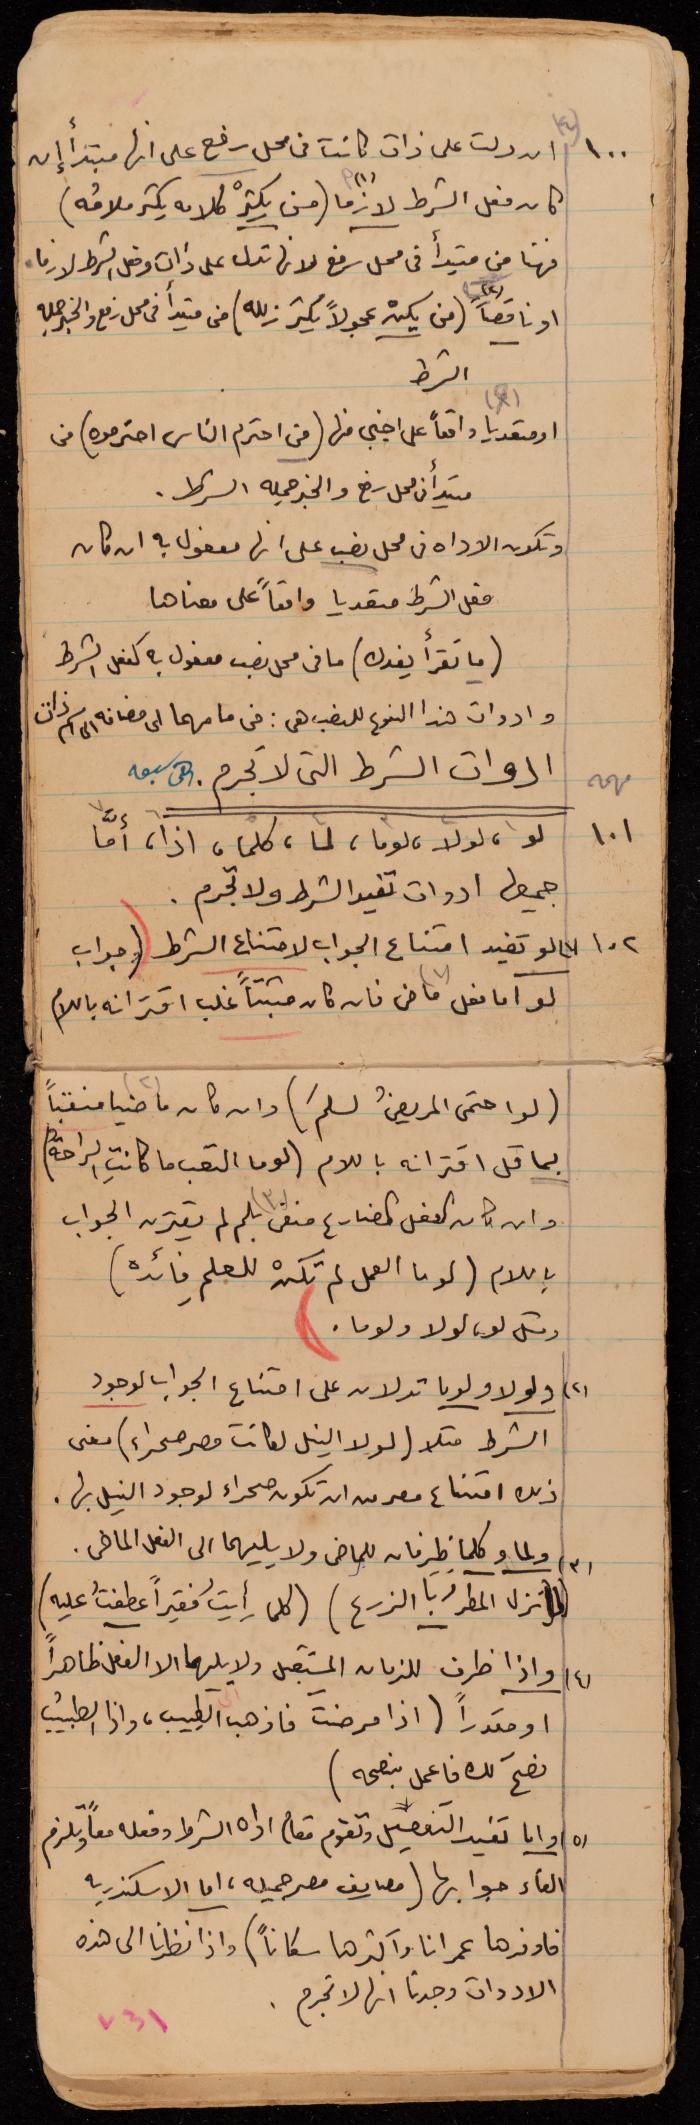 ١٠٠ ان دلت على ذات كانت فى محل رفع على انها مبتدأ إن
كان فعل الشرط لازما (١) (من يكثرْ كلامه يكثر ملامُه)
فهنا من مبتدأ فى محل رفع لانها تدل على ذات وفعل الشرط لازما.
او ناقصاً (٢) (من يكنْ عجولاً يكثر زلله) من مبتدأ فى محل رفع والخبر جمله
الشرط
او متعديا واقعاً على اجنبى منها (من احترم الناس احترموه) من
مبتدأ فى محل رفع والخبر جمله الشرط .
وتكون الاداه فى محل نصب على انها مفعول به ان كان
فعل الشرط متعديا واقعاً على معناها
(ما تقرأ يفدك) ما فى محل نصب مفعول به لفعل الشرط
وادوات هذا النوع للنصب هى : من ما مهما اى مضافه الى اسم ذات
ادوات الشرط التى لا تجزم . وهى سبعه
مهمه
١٠١ لو ، لولا ، لوما ، لما ، كلما ، اذا ، أمَّا
جميعها ادوات تفيد الشرط ولا تجزم .
١٠٢ (١) لو تفيد امتناع الجواب لامتناع الشرط (وجواب
لو اما فعل ماض (١) فان كان مثبتاً غلب اقترانه باللام
(لو احتمى المريضُ لسلمَ) وان كان ماضيا (٢) منفياً
بما قل اقترانه باللام (لوما التعب ما كانتِ الراحةُ)
وان كان الفعل المضارع منفى (٣) بلم لم يقترن الجواب
باللام (لوما العمل لم تكنْ للعلم فائده)
ومثل لو، لولا ولوما . )
(٢) ولولا ولوما تدلان على امتناع الجواب لوجود
الشرط مثلا (لولا النيل لكانت مصر صحراء) معنى
ذلك امتناع مصر من ان تكون صحراء لوجود النيل بها .
(٣) ولما وكلما ظرفان للماضى ولا يليهما الى الفعل الماضى .
(لما نزل المطر ربا الزرع) (كلما رأيتُ فقيراً عطفتُ عليه)
(٤) واذا ظرف للزمان المستقبل ولا يليهما الا الفعل ظاهراً
او مقدراً (اذا مرضتَ فاذهب الى الطبيب ، واذا الطبيبُ
نصحَ لك فاعمل بنصحه)
(٥) واما تفيد التفصيل وتقوم مقام اداه الشرط وفعله معاً وتلزم
الفاء جوابها (مصايف مصر جميله ، اما الاسكندريه
فاوفرها عمرانا واكثرها سكاناً) واذا نظرنا الى هذه
الادوات وجدنا انها لا تجزم .